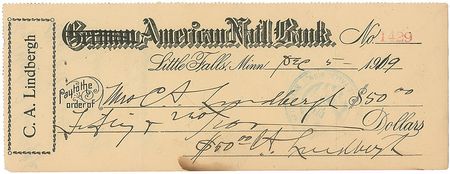 C. A. Lindbergh
German American Natl Bank.
No. 1429
Little Falls, Minn. Dec 5 1919
Pay to the order of Mrs C A Lindbergh $50.00
Fifty & no/100 Dollars
$50.00 C A Lindbergh